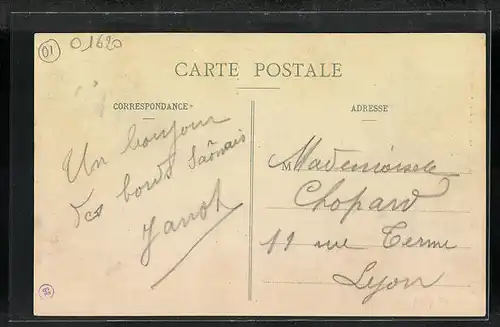 01
01620
CARTE POSTALE
CORRESPONDANCE
ADRESSE
Un bonjour
des bords Saônais
Janot
Mademoiselle
Chopard
11 rue Terme
Lyon